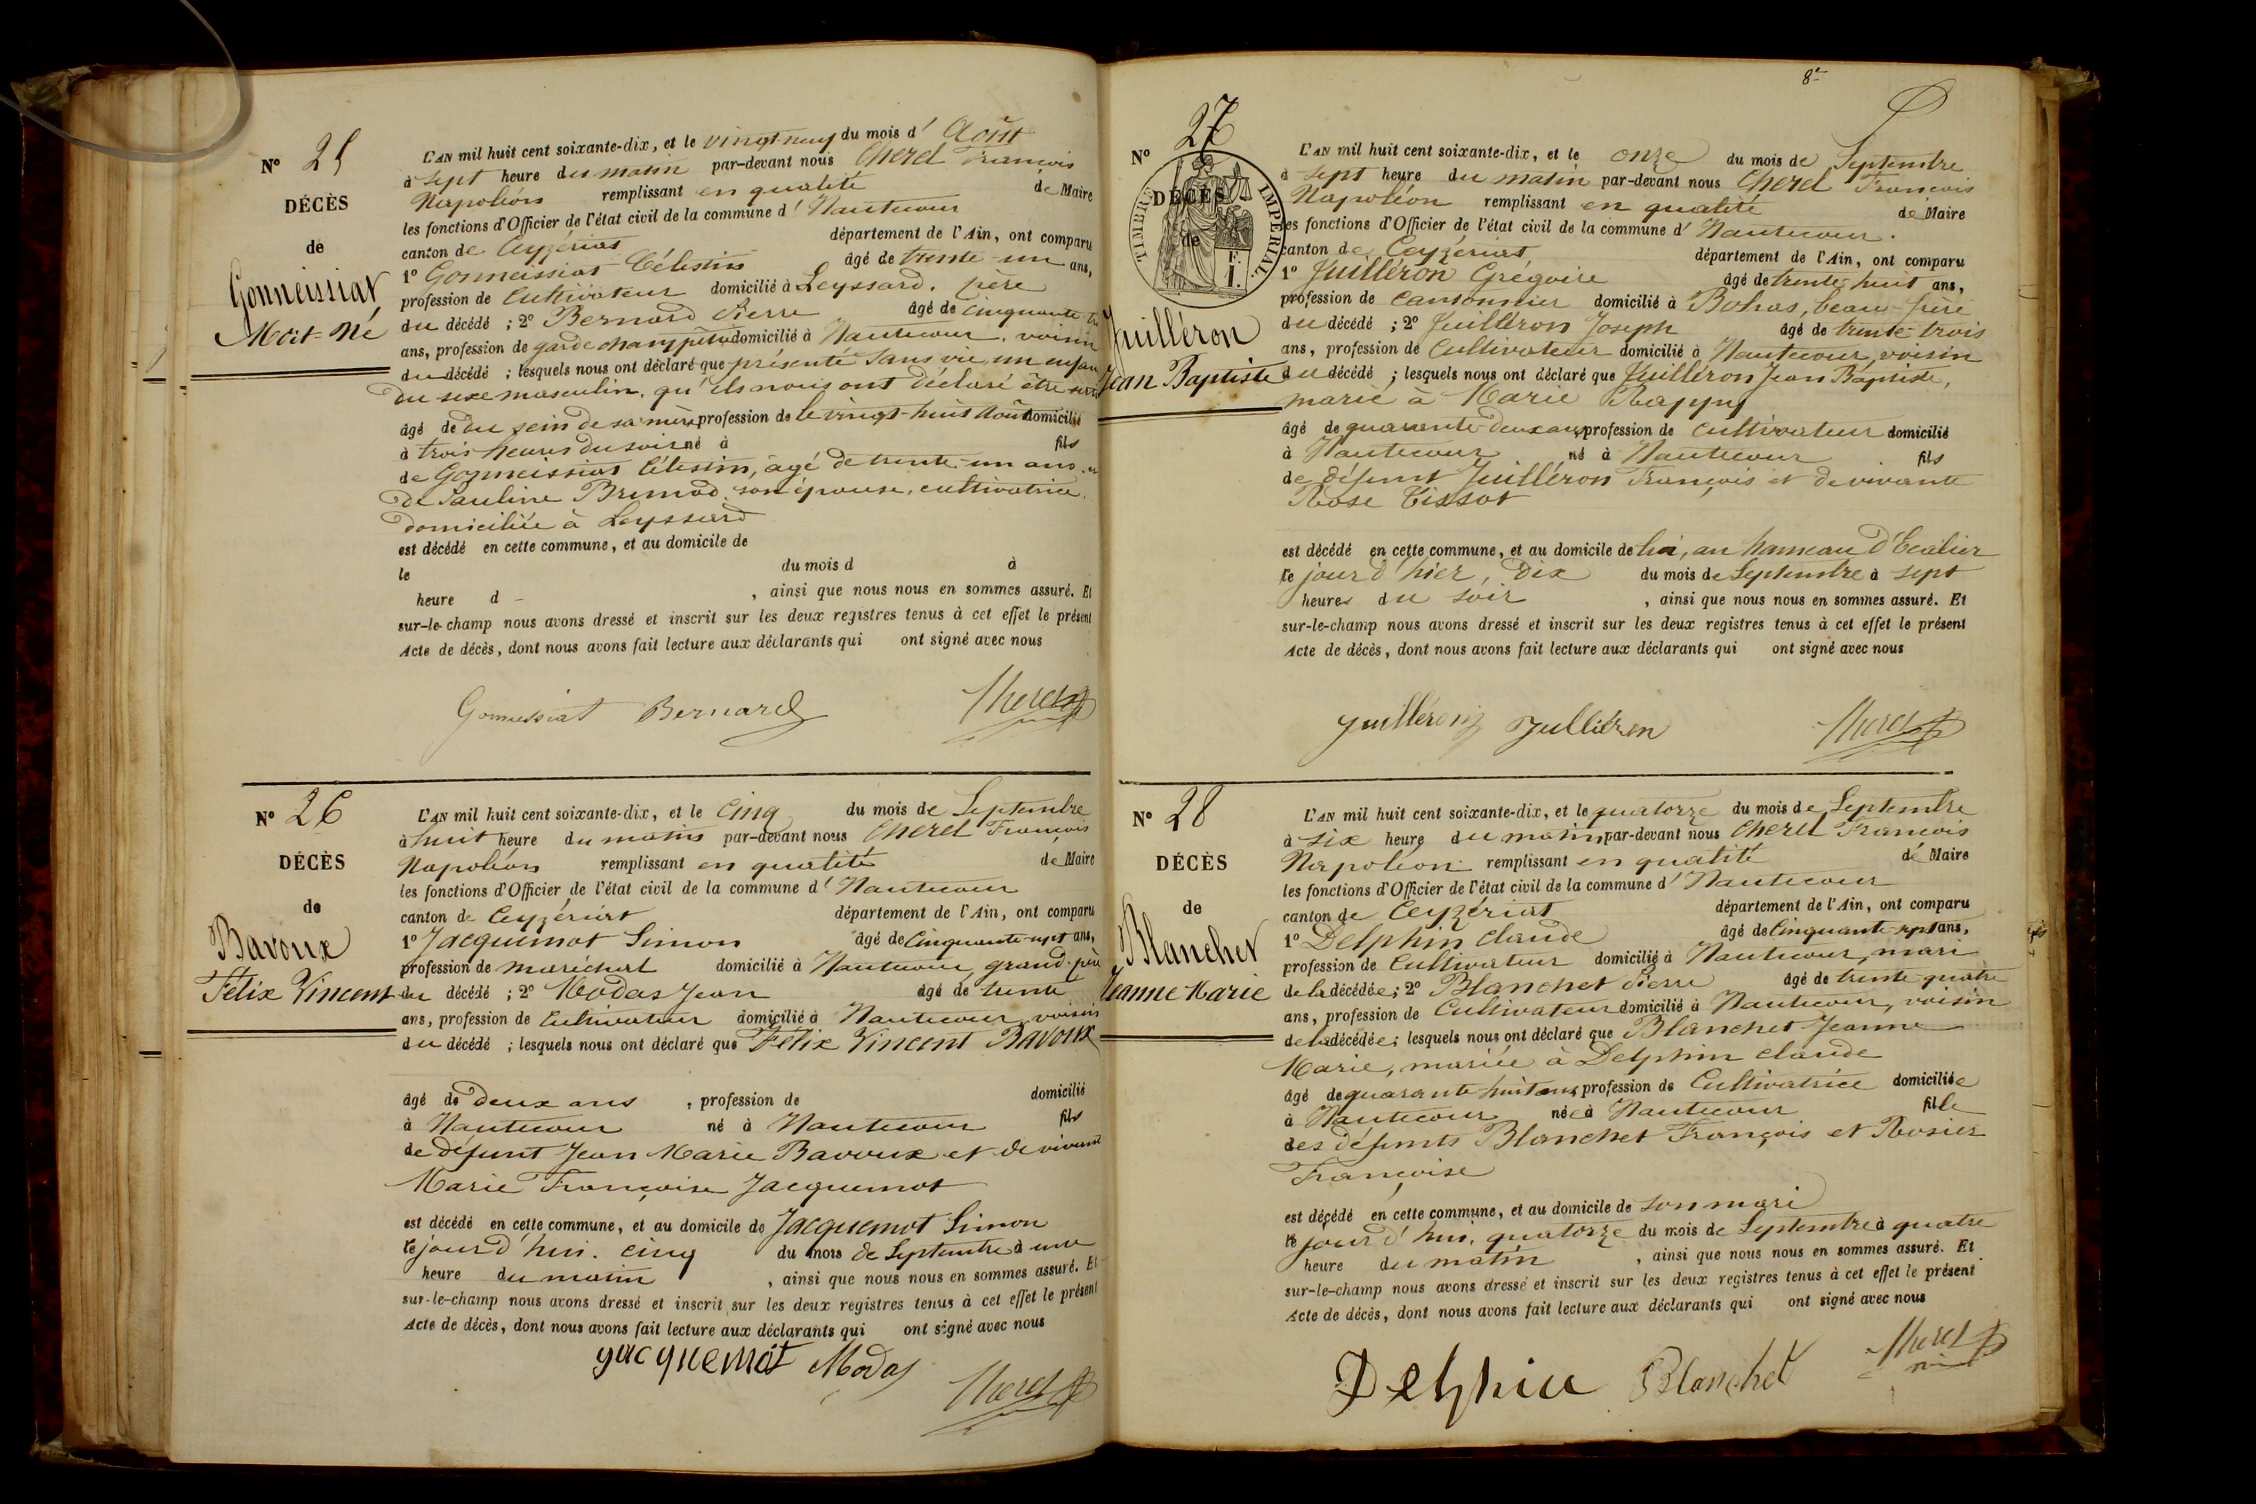 N° 25
DÉCÈS
de
Gonneissiat
Mort-Né
L'AN mil huit cent soixante-dix, et le vingt-neuf du mois d'Août
à sept heure du matin par-devant nous Cherel François
Napoléon remplissant en qualité de Maire
les fonctions d'Officier de l'état civil de la commune d'Hautecour
canton de Ceyzériat département de l'Ain, ont comparu
1° Gonneissiat Célestin âgé de trente-un ans,
profession de Cultivateur domicilié à Leyssard, père
du décédé ; 2° Bernard Pierre âgé de cinquante
ans, profession de garde champêtre domicilié à Hautecour, voisin
du décédé ; lesquels nous ont déclaré que présenté sans vie un enfant
du sexe masculin, qu'ils nous ont déclaré être sorti
âgé de du sein de sa mère, profession de le vingt-huit Août domicilié
à trois heures du soir né à fils
de Gonneissiat Célestin, âgé de trente-un ans, et
de Pauline Brunod son épouse, cultivatrice,
domiciliée à Leyssard
est décédé en cette commune, et au domicile de
le du mois d à
heure d , ainsi que nous nous en sommes assuré. Et
sur-le-champ nous avons dressé et inscrit sur les deux registres tenus à cet effet le présent
Acte de décès, dont nous avons fait lecture aux déclarants qui ont signé avec nous
Gonneissiat Bernard Cherel
N° 26
DÉCÈS
de
Bavoux
Félix Vincent
L'AN mil huit cent soixante-dix, et le cinq du mois de Septembre
à huit heure du matin par-devant nous Cherel François
Napoléon remplissant en qualité de Maire
les fonctions d'Officier de l'état civil de la commune d'Hautecour
canton de Ceyzériat département de l'Ain, ont comparu
1° Jacquemot Simon âgé de cinquante-sept ans,
profession de maréchal domicilié à Hautecour, grand-père
du décédé ; 2° Modas Jean âgé de trente
ans, profession de Cultivateur domicilié à Hautecour, voisin
du décédé ; lesquels nous ont déclaré que Félix Vincent Bavoux
âgé de deux ans , profession de domicilié
à Hautecour né à Hautecour fils
de défunt Jean Marie Bavoux et de vivante
Marie Françoise Jacquemot
est décédé en cette commune, et au domicile de Jacquemot Simon
le jourd'hui, cinq du mois de Septembre à une
heure du matin , ainsi que nous nous en sommes assuré. Et
sur-le-champ nous avons dressé et inscrit sur les deux registres tenus à cet effet le présent
Acte de décès, dont nous avons fait lecture aux déclarants qui ont signé avec nous
Jacquemot Modas Cherel
8e
N° 27
DÉCÈS
de
TIMBRE IMPÉRIAL
1 F.
Juilléron
Jean Baptiste
L'AN mil huit cent soixante-dix, et le onze du mois de Septembre
à sept heure du matin par-devant nous Cherel François
Napoléon remplissant en qualité de Maire
les fonctions d'Officier de l'état civil de la commune d'Hautecour.
canton de Ceyzériat département de l'Ain, ont comparu
1° Juilléron Grégoire âgé de trente-huit ans,
profession de cantonnier domicilié à Bohas, beau-frère
du décédé ; 2° Juilléron Joseph âgé de trente-trois
ans, profession de Cultivateur domicilié à Hautecour, voisin
du décédé ; lesquels nous ont déclaré que Juilléron Jean Baptiste,
marié à Marie Rappy
âgé de quarante-deux ans, profession de cultivateur domicilié
à Hautecour né à Hautecour fils
de défunt Juilléron François et de vivante
Rose Tissot
est décédé en cette commune, et au domicile de lui, au hameau d'
le jour d'hier, dix du mois de Septembre à sept
heures du soir , ainsi que nous nous en sommes assuré. Et
sur-le-champ nous avons dressé et inscrit sur les deux registres tenus à cet effet le présent
Acte de décès, dont nous avons fait lecture aux déclarants qui ont signé avec nous
Juilléron Julliéron Cherel
N° 28
DÉCÈS
de
Blanchet
Jeanne Marie
L'AN mil huit cent soixante-dix, et le quatorze du mois de Septembre
à six heure du matin, par-devant nous Cherel François
Napoléon remplissant en qualité de Maire
les fonctions d'Officier de l'état civil de la commune d'Hautecour
canton de Ceyzériat département de l'Ain, ont comparu
1° Delphin Claude âgé de cinquante-sept ans,
profession de Cultivateur domicilié à Hautecour, mari
de la décédée ; 2° Blanchet Pierre âgé de trente-quatre
ans, profession de Cultivateur domicilié à Hautecour, voisin
de la décédée ; lesquels nous ont déclaré que Blanchet Jeanne
Marie, mariée à Delphin Claude
âgé de quarante-huit ans, profession de Cultivatrice domiciliée
à Hautecour née à Hautecour fille
des défunts Blanchet François et Rosier
Françoise
est décédé en cette commune, et au domicile de son mari
le jourd'hui, quatorze du mois de Septembre à quatre
heure du matin , ainsi que nous nous en sommes assuré. Et
sur-le-champ nous avons dressé et inscrit sur les deux registres tenus à cet effet le présent
Acte de décès, dont nous avons fait lecture aux déclarants qui ont signé avec nous
Delphin Blanchet Cherel